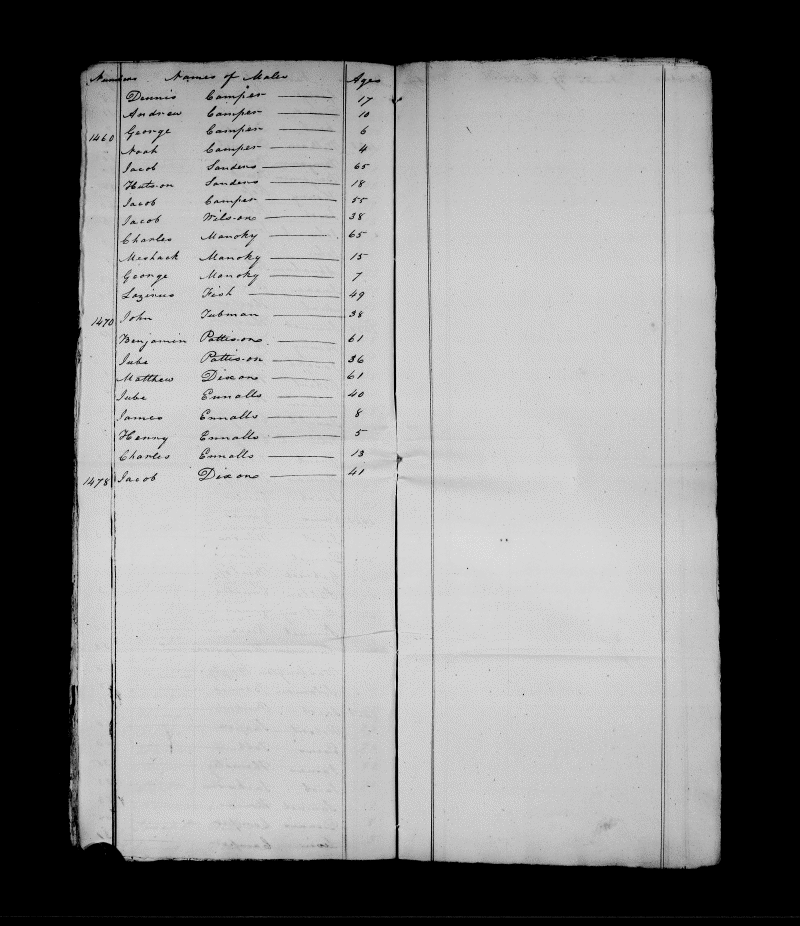 Numbers Names of Males Ages
Dennis Camper 17
Andrew Camper 10
1460 George Camper 6
Noah Camper 4
Jacob Sanders 65
Hutson Sanders 18
Jacob Camper 55
Jacob Wilson 38
Charles Manoky 65
Meshack Manoky 15
George Manoky 7
Lazirus Fish 49
1470 John Tubman 38
Benjamin Pattison 61
Jube Pattison 36
Matthew Dixon 61
Jube Ennalls 40
James Ennalls 8
Henny Ennalls 5
Charles Ennalls 13
1478 Jacob Dixon 41